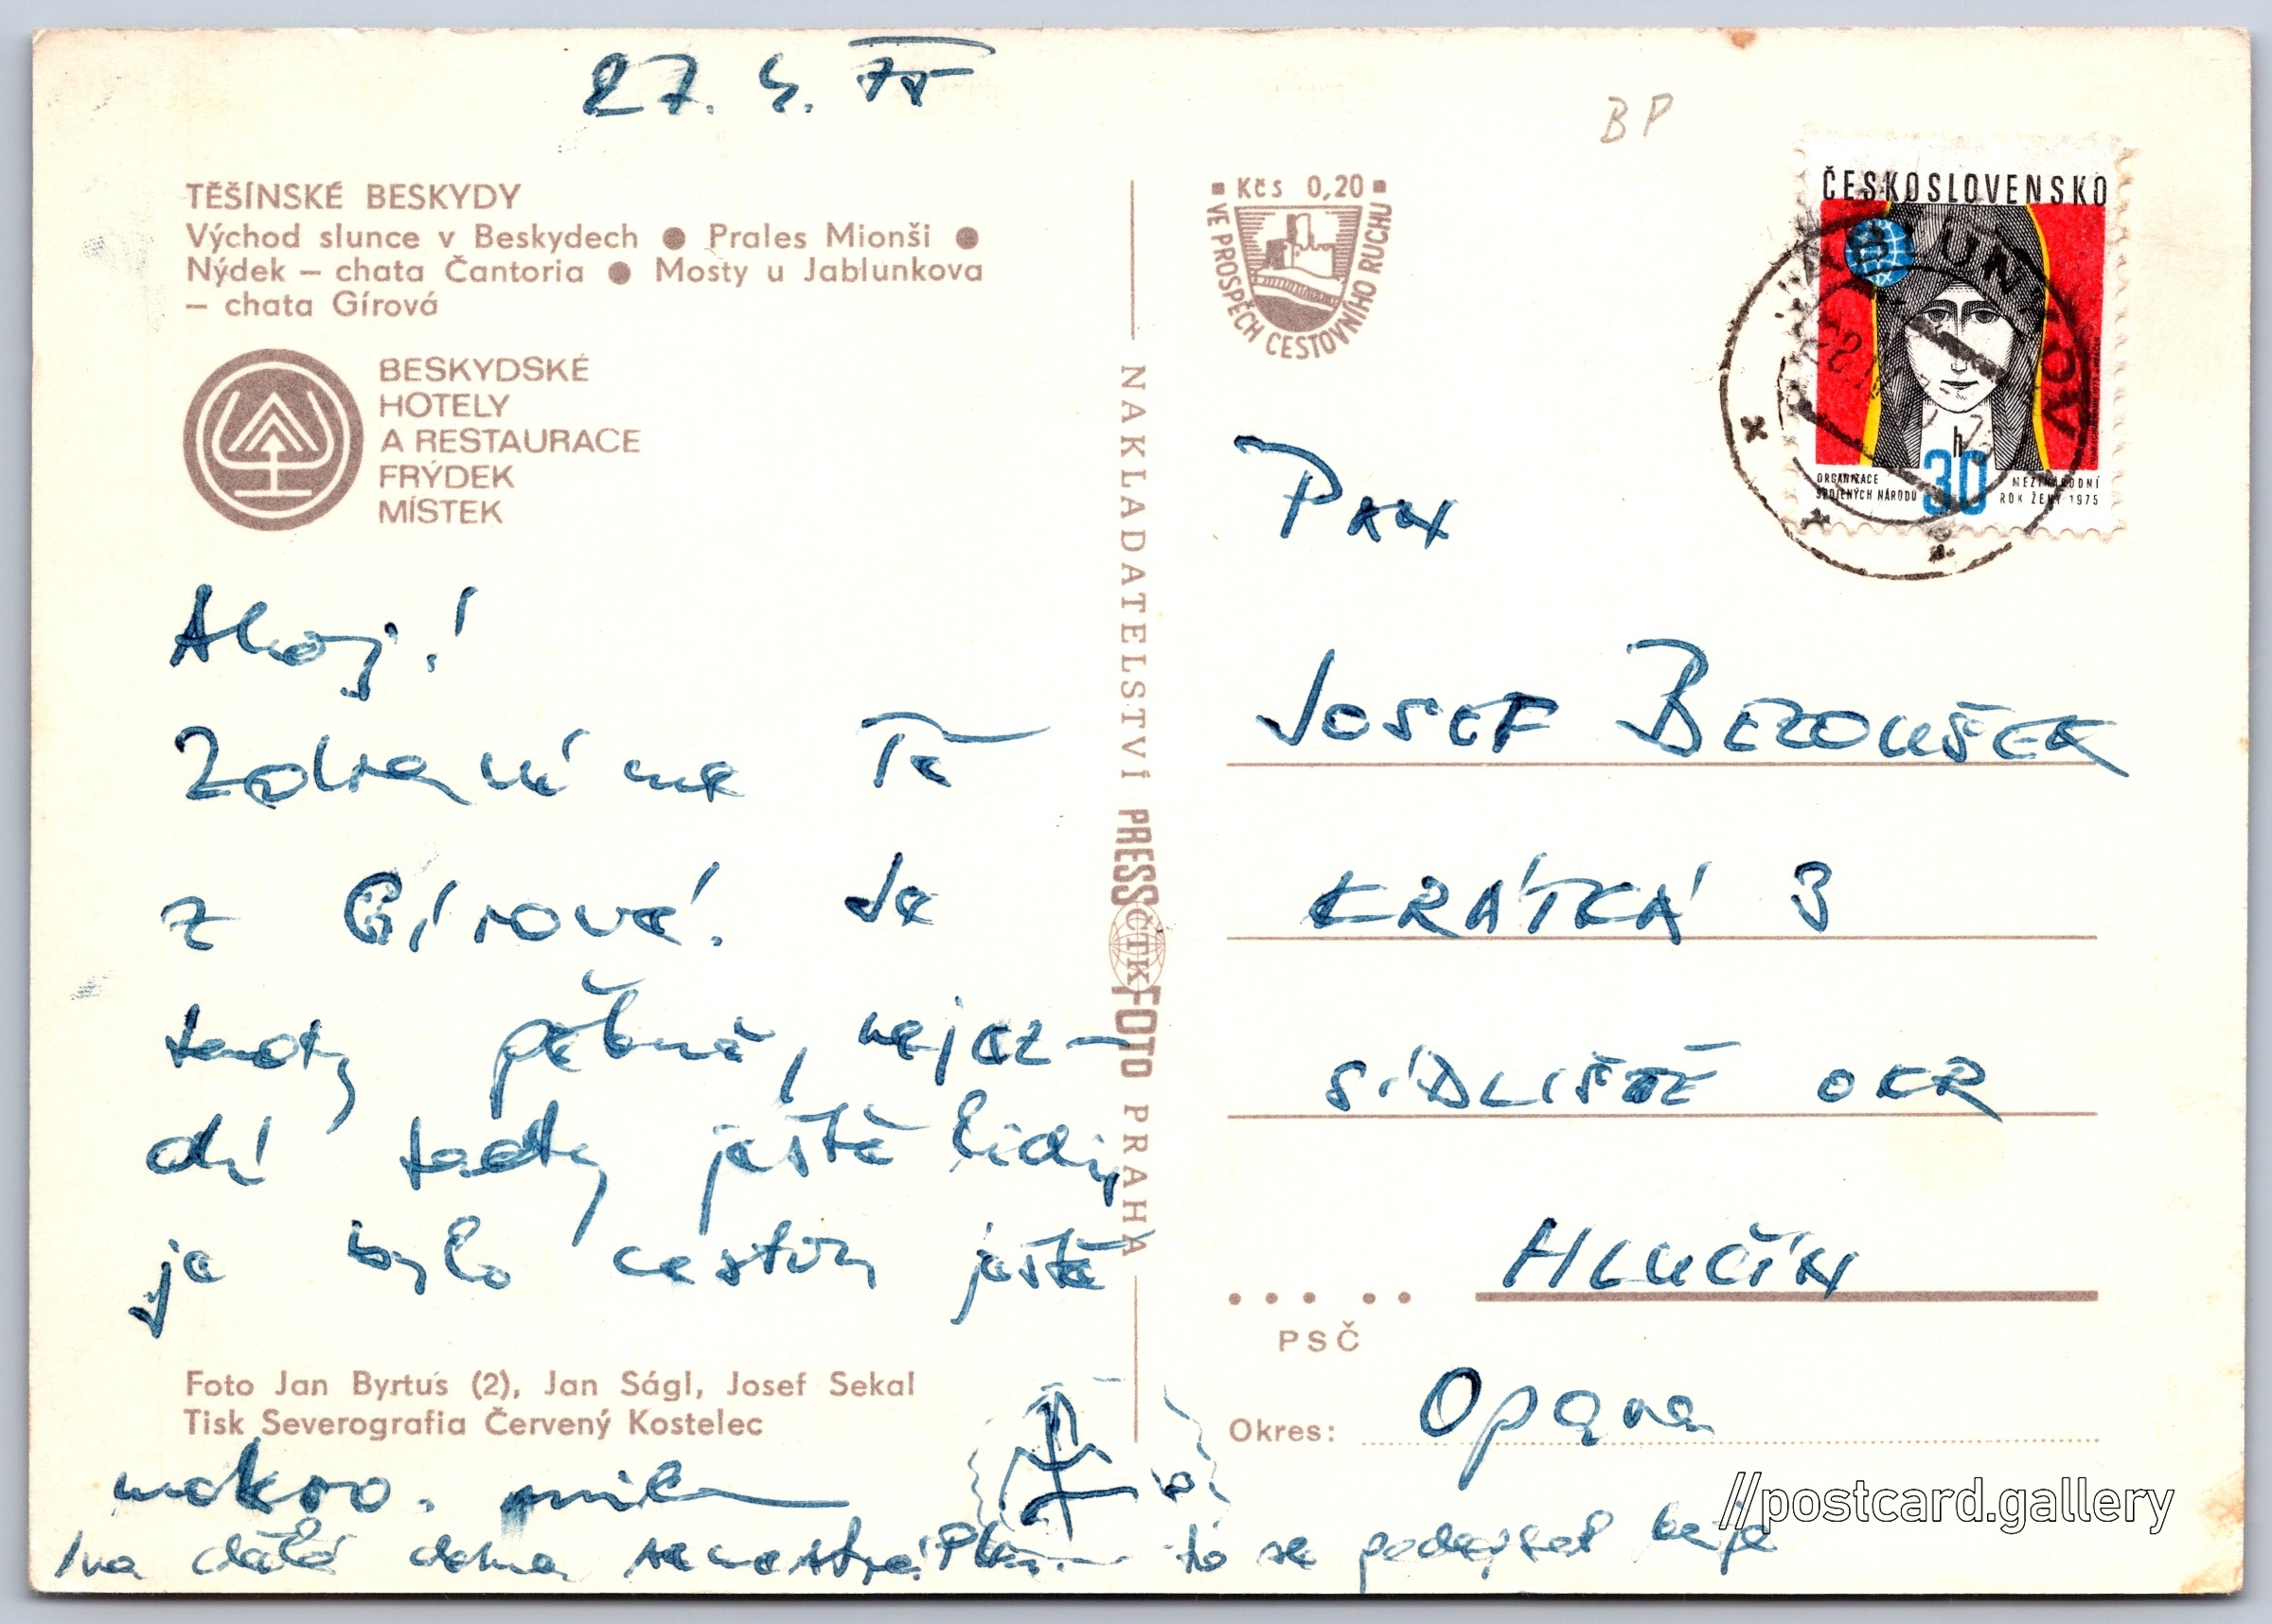 27. 4. 75
BP
TĚŠÍNSKÉ BESKYDY
Východ slunce v Beskydech ● Prales Mionší ●
Nýdek – chata Čantoria ● Mosty u Jablunkova
– chata Gírová
BESKYDSKÉ
HOTELY
A RESTAURACE
FRÝDEK
MÍSTEK
Ahoj!
Zdraví me Tě
z Gírové! Je
tady pěkně, nejez-
dí tady ještě lidi,
je bylo cestou ještě
Foto Jan Byrtus (2), Jan Ságl, Josef Sekal
Tisk Severografia Červený Kostelec
mokro.
Iva dělá doma to se podepsat
NAKLADATELSTVÍ PRESSFOTO PRAHA
ČTK
Kčs 0,20
VE PROSPĚCH CESTOVNÍHO RUCHU
ČESKOSLOVENSKO
h
30
ORGANIZACE
SPOJENÝCH NÁRODŮ
MEZINÁRODNÍ
ROK ŽENY 1975
JABLUNKOV
Pan
JOSEF BEZOUŠEK
KRÁTKÁ 3
SÍDLIŠTĚ OKR
HLUČÍN
PSČ
Okres: Opava
//postcard.gallery